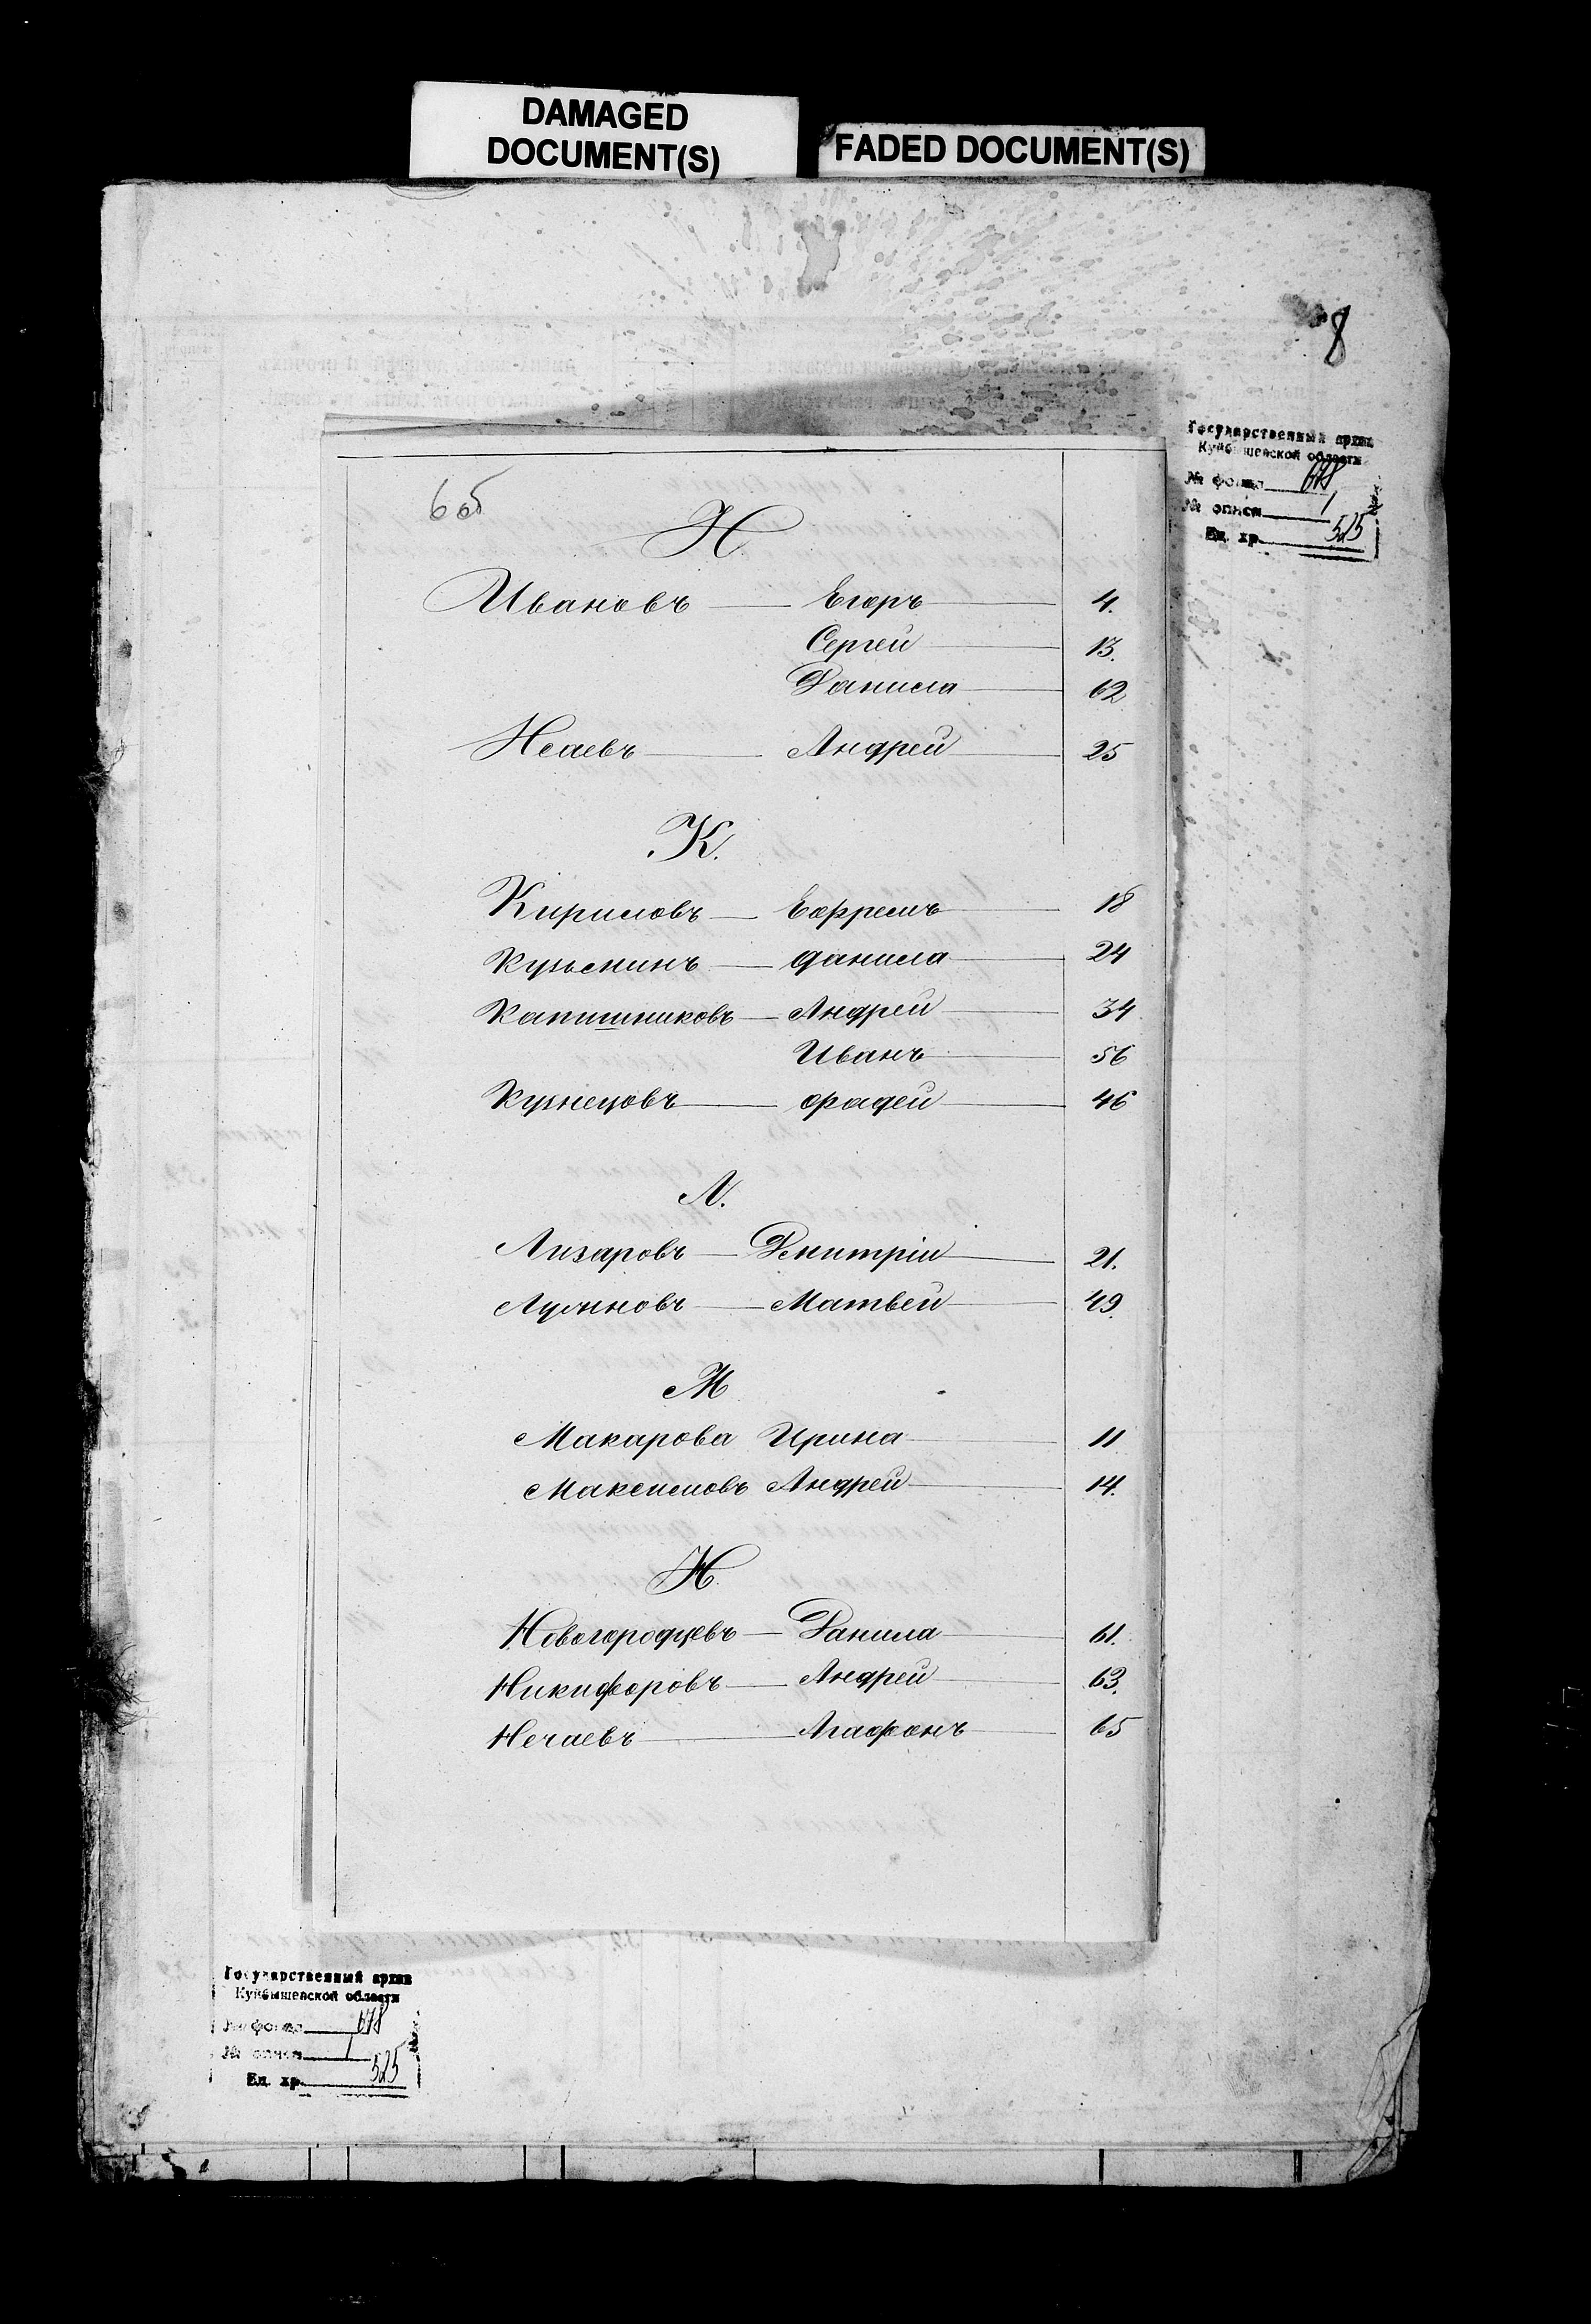 DAMAGED
DOCUMENT(S)
FADED DOCUMENT(S)
8
Государственный архив
Куйбышевской области
№ фонда 678
№ описи 1
Ед. хр. 525
И
Ивановъ Егоръ 4.
Сергей 13.
Данила 62
Исаевъ Андрей 25
К.
Кириловъ Ефремъ 18
Кузьминъ Данила 24
Капишниковъ Андрей 34
Иванъ 56
Кузнецовъ Фадей 46
Л.
Лизаровъ Дмитрій 21.
Матвей 49.
М
Макарова Ирина 11
Максимовъ Андрей 14.
Н.
Новогородцевъ Данила 61.
Никифоровъ Андрей 63.
Нечаевъ Агафонъ 65
Государственный архив
Куйбышевской области
№ фонда 678
№ описи 1
Ед. хр. 525